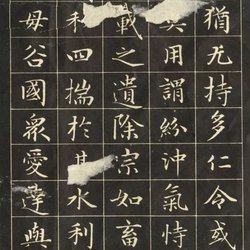 猶尤持多仁令或
其用謂紛沖氣恃
載之遺除宗如畜
和四揣於其水利
毋谷國眾愛達與